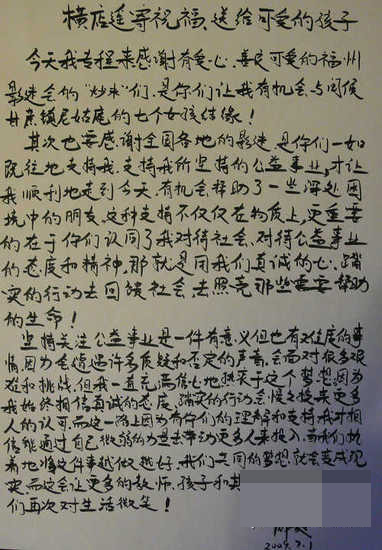 横店遥寄祝福、送给可爱的孩子
今天我专程来感谢有爱心、善良可爱的福州
影迷会的"炒米"们,是你们让我有机会与闽侯
甘蔗镇尼姑庵的七个女孩结缘!
其次也要感谢全国各地的影迷,是你们一如
既往地支持我,支持我所坚持的公益事业,才让
我顺利地走到今天,有机会帮助了一些深处困
境中的朋友,这种支持不仅仅在物质上,更重要
的在于你们认同了我对待社会、对待公益事业
的态度和精神,那就是用我们真诚的心、踏
实的行动去回馈社会,去照亮那些需要帮助
的生命!
坚持关注公益事业是一件有意义但也有难度的事
情,因为会遭遇许多质疑和否定的声音,会面对很多艰
难和挑战,但我一直充满信心地执著于这个梦想,因为
我始终相信真诚的态度,踏实的行动会慢慢换来更多
人的认可,而这一路上因为有你们的理解和支持,我才相
信能通过自己微薄的力量去带动更多人来投入,当我们执
着地将这件事越做越好,我们共同的梦想,就会变成现
实,而这会让更多的教师、孩子和其
们再次对生活微笑!
2009.7.1